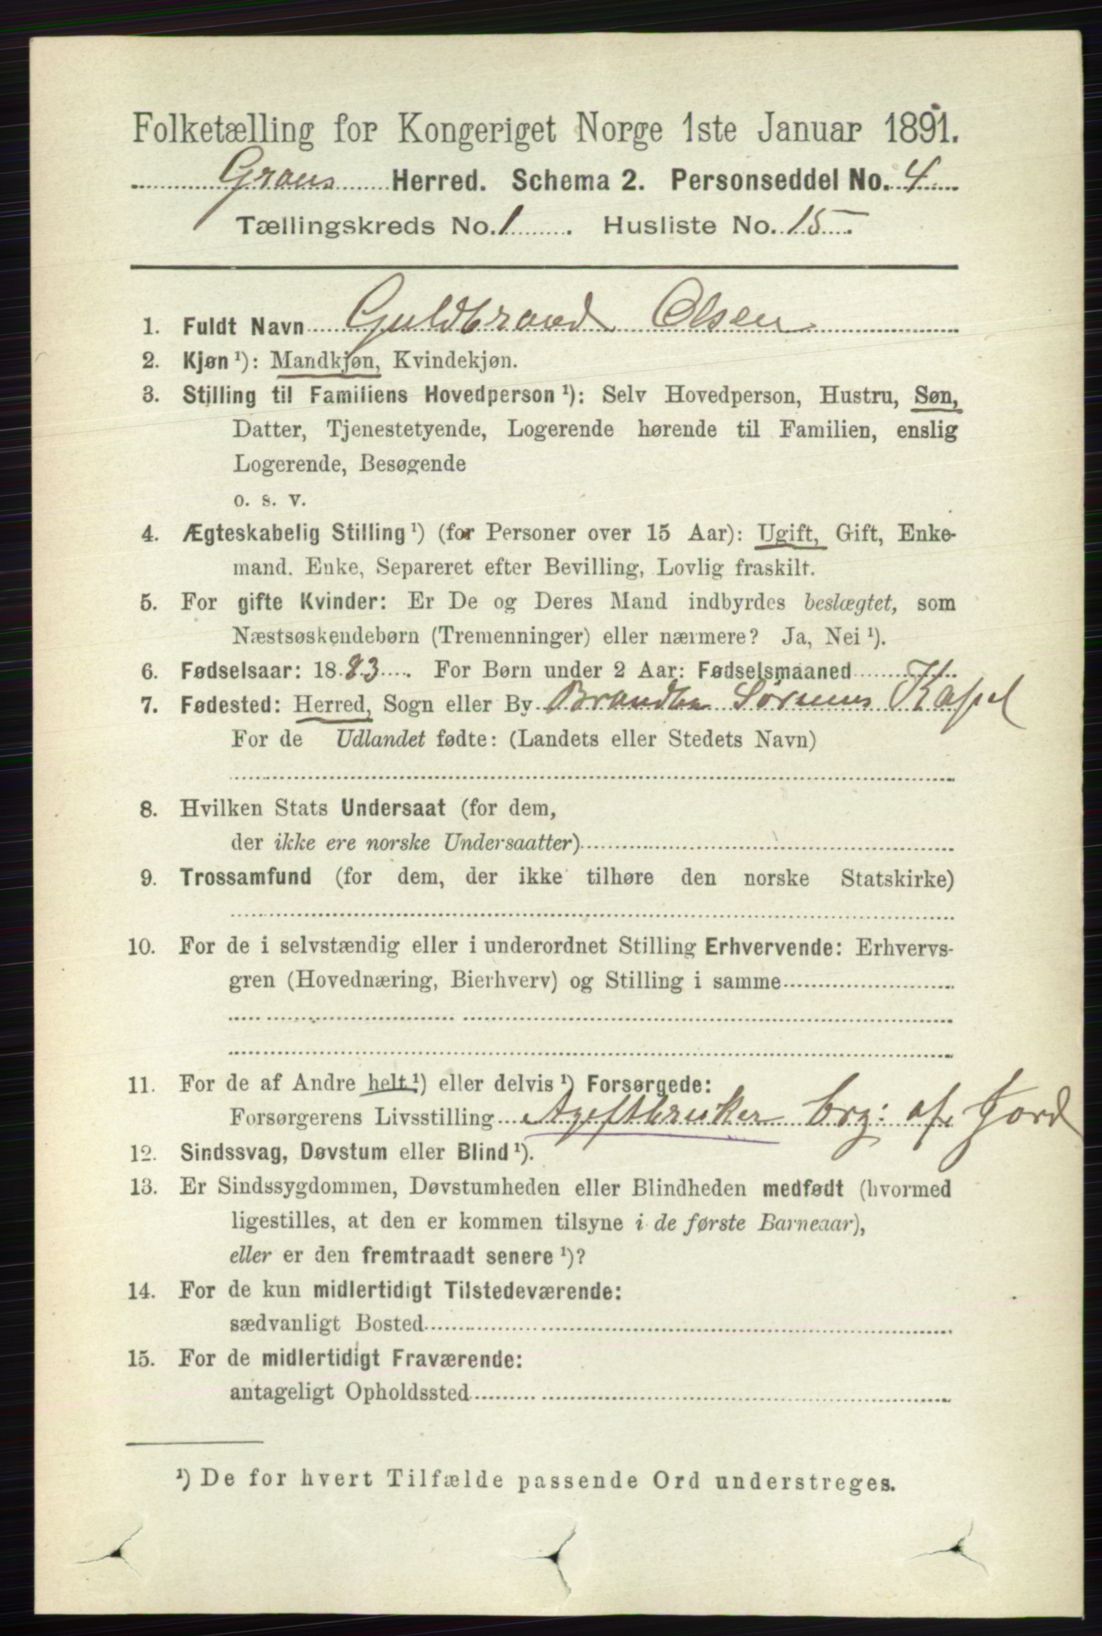 Folketælling for Kongeriget Norge 1ste Januar 1891.
Grans Herred. Schema 2. Personseddel No. 4
Tællingskreds No. 1. Husliste No. 15.
1. Fuldt Navn Guldbrand Olsen
2. Kjøn ¹): Mandkjøn, Kvindekjøn.
3. Stilling til Familiens Hovedperson ¹): Selv Hovedperson, Hustru, Søn,
Datter, Tjenestetyende, Logerende hørende til Familien, enslig
Logerende, Besøgende
o. s. v.
4. Ægteskabelig Stilling ¹) (for Personer over 15 Aar): Ugift, Gift, Enke-
mand. Enke, Separeret efter Bevilling, Lovlig fraskilt.
5. For gifte Kvinder: Er De og Deres Mand indbyrdes beslægtet, som
Næstsøskendebørn (Tremenninger) eller nærmere? Ja, Nei ¹).
6. Fødselsaar: 1883. For Børn under 2 Aar: Fødselsmaaned
7. Fødested: Herred, Sogn eller By Brandbu Sørums Kapel
For de Udlandet fødte: (Landets eller Stedets Navn)
8. Hvilken Stats Undersaat (for dem,
der ikke ere norske Undersaatter)
9. Trossamfund (for dem, der ikke tilhøre den norske Statskirke)
10. For de i selvstændig eller i underordnet Stilling Erhvervende: Erhvervs-
gren (Hovednæring, Bierhverv) og Stilling i samme
11. For de af Andre helt ¹) eller delvis ¹) Forsørgede:
Forsørgerens Livsstilling brg: af Jord
12. Sindssvag, Døvstum eller Blind ¹).
13. Er Sindssygdommen, Døvstumheden eller Blindheden medfødt (hvormed
ligestilles, at den er kommen tilsyne i de første Barneaar),
eller er den fremtraadt senere ¹)?
14. For de kun midlertidigt Tilstedeværende:
sædvanligt Bosted
15. For de midlertidigt Fraværende:
antageligt Opholdssted
¹) De for hvert Tilfælde passende Ord understreges.